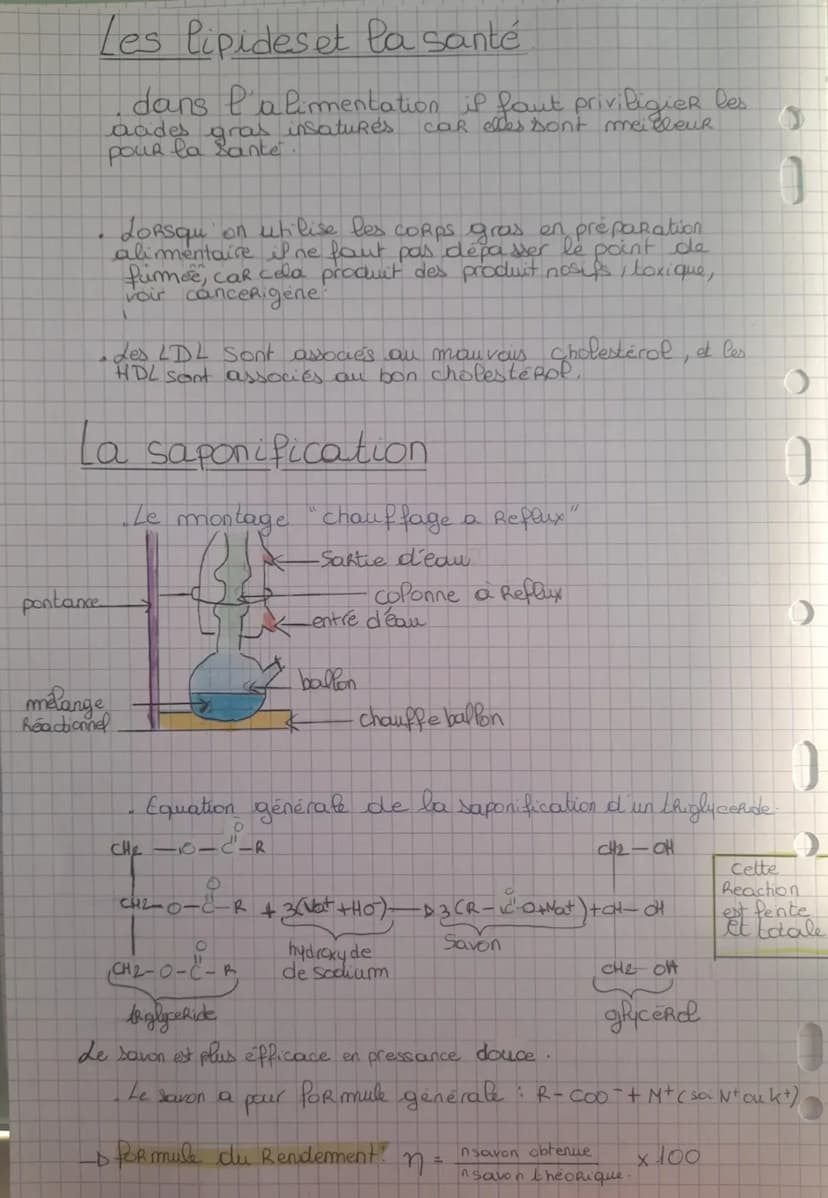 Les lipides et la santé
. dans l'alimentation il faut priviligier les
acides gras insaturés car elles sont meilleur
pour la santé.
. Lorsqu'on utilise les corps gras en préparation
alimentaire il ne faut pas dépasser le point de
fumée, car cela produit des produit nosifs, toxique,
voir cancerigène.
. les LDL sont associés au mauvais cholestérol, et les
HDL sont associés au bon cholestérol.
La saponification
. Le montage "chauffage a Reflux"
Sortie d'eau
colonne à Reflux
pontance
entré d'eau
ballon
mélange
Réactionnel
chauffe ballon
. Equation générale de la saponification d'un triglyceride.
O
CH2 — O — C — R
CH2 — OH
Cette
Reaction
est lente
et totale
O
O
CH2 — O — C — R + 3(Na+ + HO-) → 3(R — C — O + Na+) + CH — OH
hydroxyde
de sodium
Savon
O
CH2 — O — C — R
CH2 — OH
triglyceride
glycérol
Le savon est plus efficace en pressance douce.
. Le savon a pour formule générale : R - COO- + M+ (soi N+ ou k+)
→ formule du Rendement : η = n savon obtenue / n savon théorique. x 100